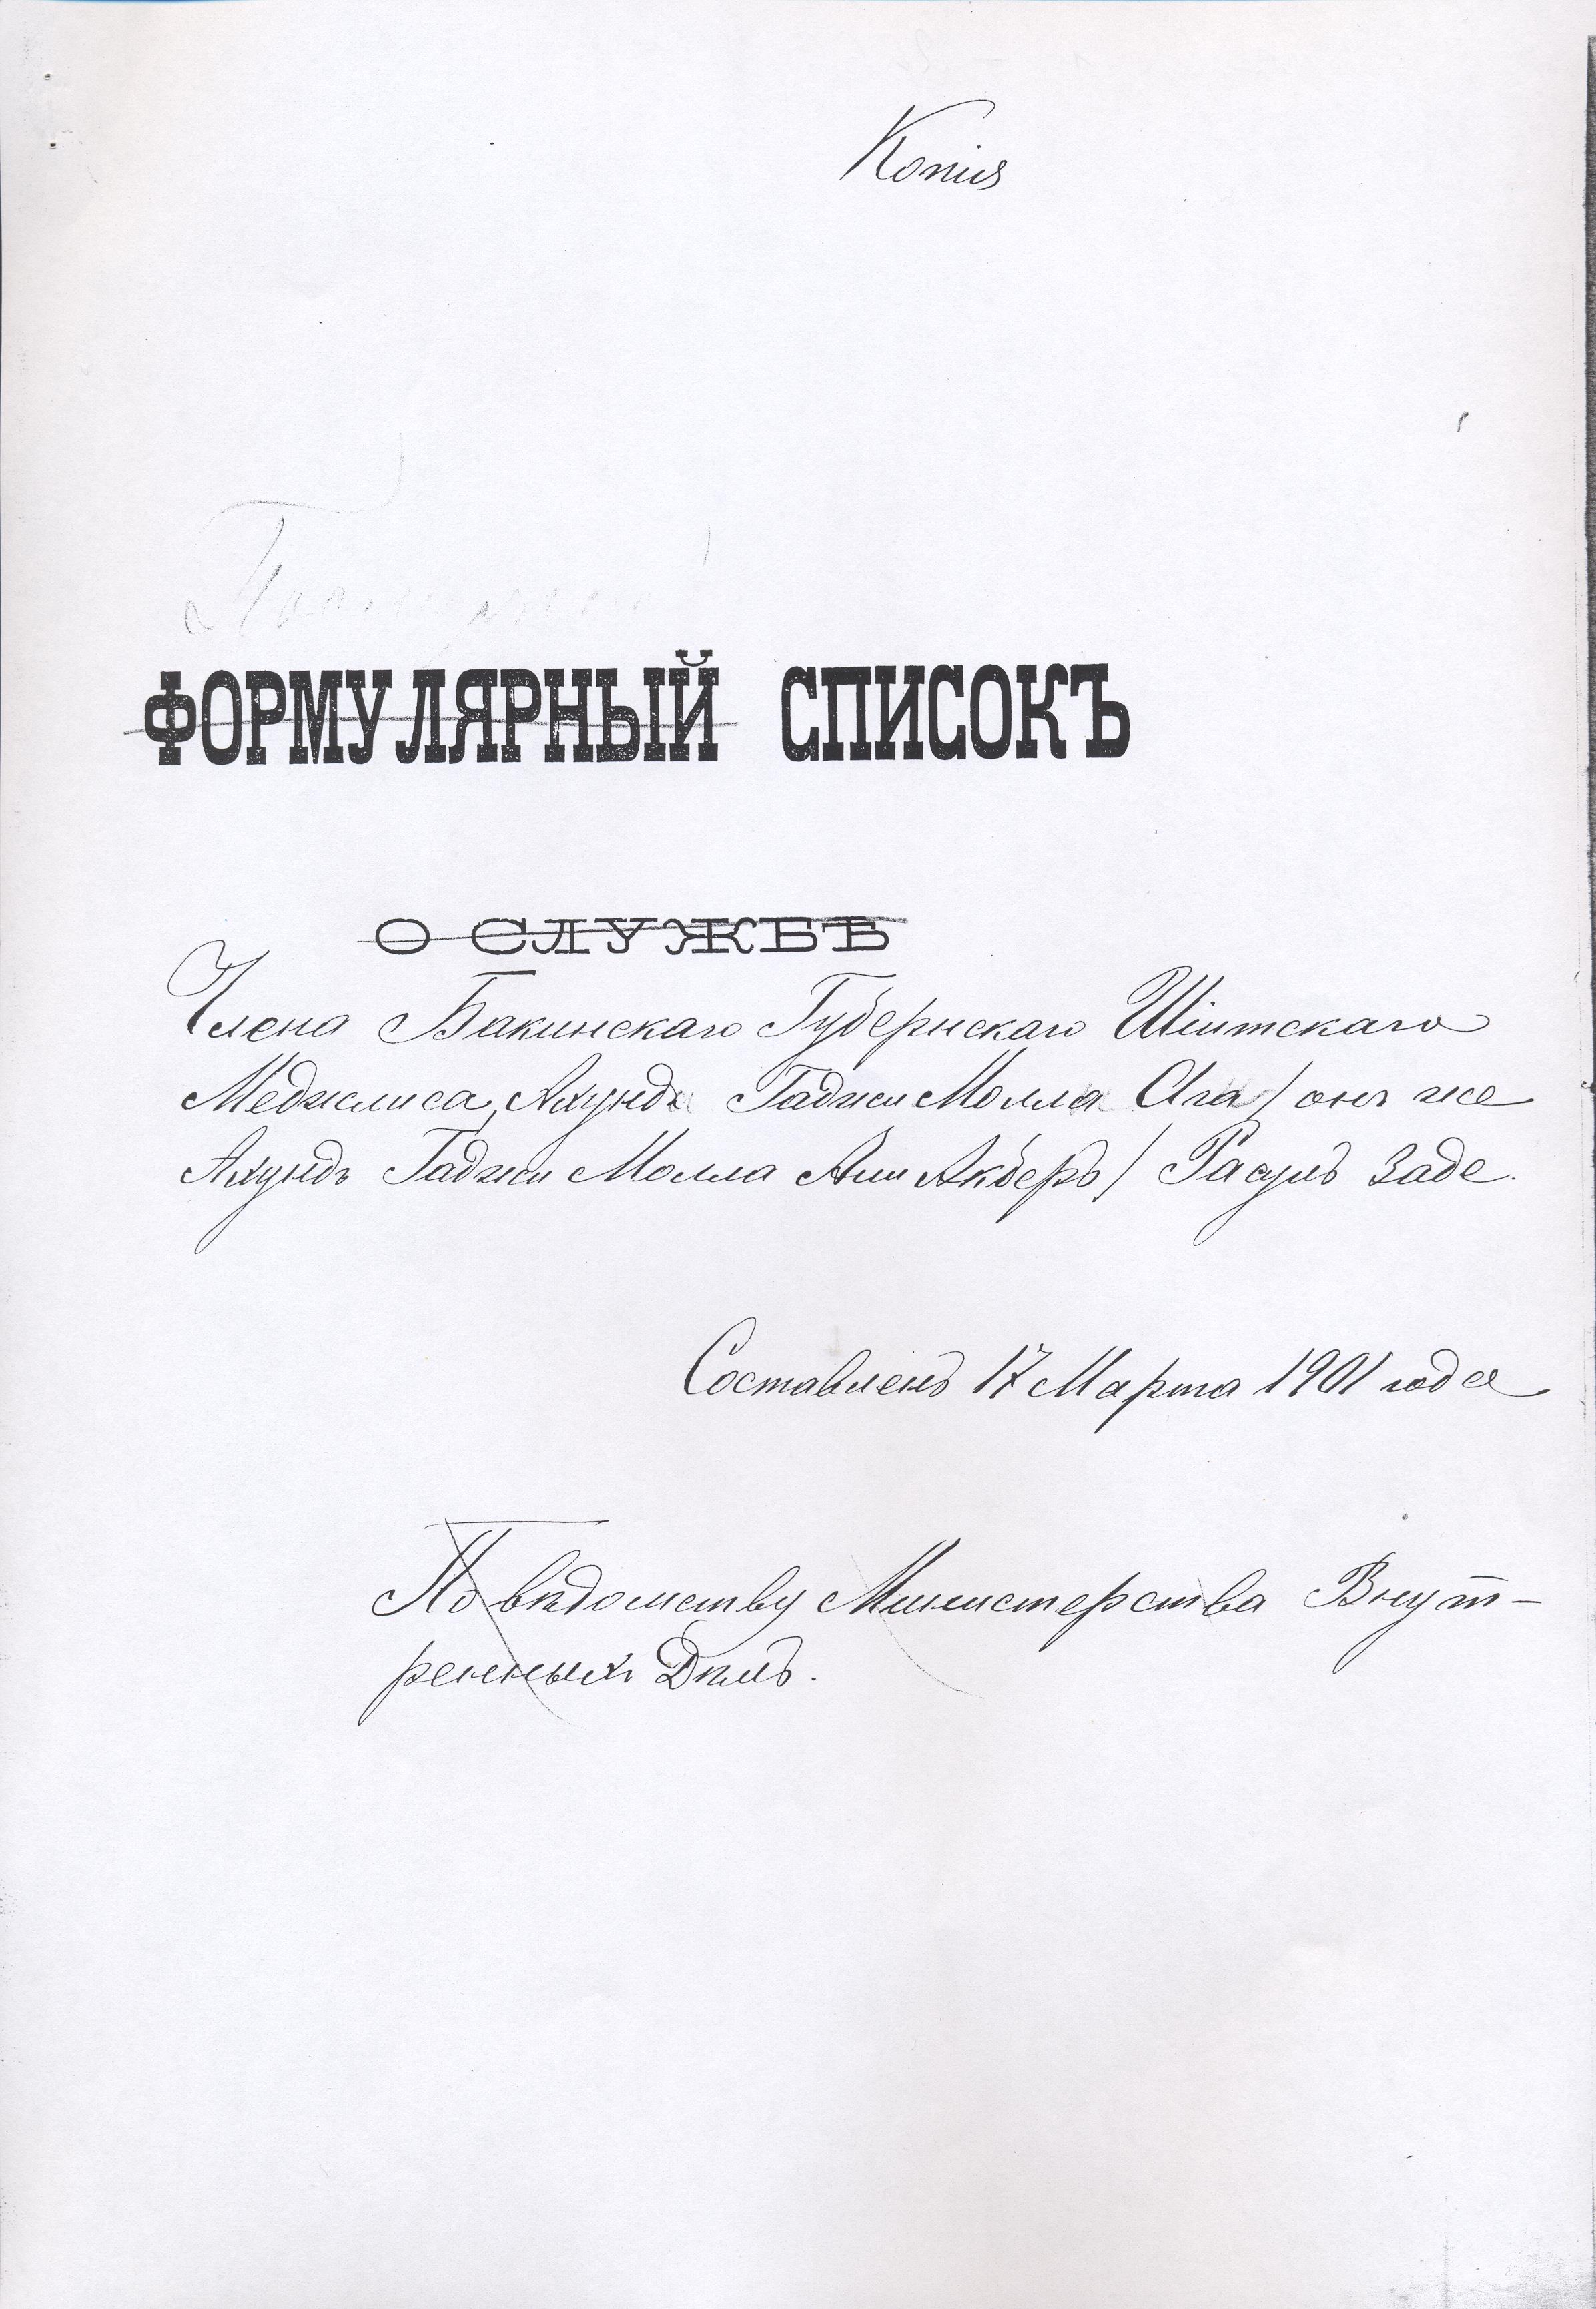 Копія
ФОРМУЛЯРНЫЙ СПИСОКЪ
О СЛУЖБѢ
Члена Бакинскаго Губернскаго Шіитскаго
Меджлиса, Ахунда Гаджи Молла Ага / онъ же
Ахундъ Гаджи Молла Али Акберъ / Расулъ Заде.
Составленъ 17 Марта 1901 года
По вѣдомству Министерства Внут-
ренныхъ Дѣлъ.